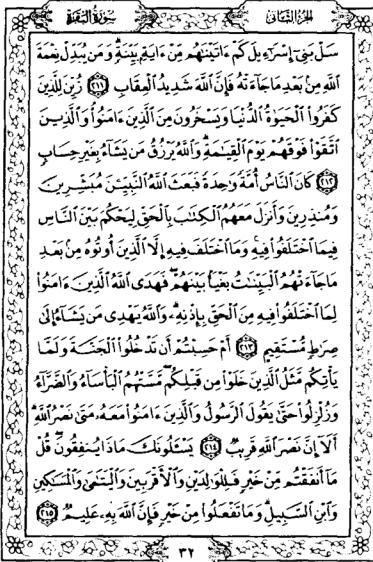 سُورَةُ البَقَرَةِ
الجُزْءُ الثَّانِي
سَلْ بَنِىٓ إِسْرَٰٓءِيلَ كَمْ ءَاتَيْنَٰهُم مِّنْ ءَايَةٍۭ بَيِّنَةٍ ۗ وَمَن يُبَدِّلْ نِعْمَةَ
ٱللَّهِ مِنۢ بَعْدِ مَا جَآءَتْهُ فَإِنَّ ٱللَّهَ شَدِيدُ ٱلْعِقَابِ ۝٢١١ زُيِّنَ لِلَّذِينَ
كَفَرُوا۟ ٱلْحَيَوٰةُ ٱلدُّنْيَا وَيَسْخَرُونَ مِنَ ٱلَّذِينَ ءَامَنُوا۟ ۘ وَٱلَّذِينَ
ٱتَّقَوْا۟ فَوْقَهُمْ يَوْمَ ٱلْقِيَٰمَةِ ۗ وَٱللَّهُ يَرْزُقُ مَن يَشَآءُ بِغَيْرِ حِسَابٍ
۝٢١٢ كَانَ ٱلنَّاسُ أُمَّةً وَٰحِدَةً فَبَعَثَ ٱللَّهُ ٱلنَّبِيِّـۧنَ مُبَشِّرِينَ
وَمُنذِرِينَ وَأَنزَلَ مَعَهُمُ ٱلْكِتَٰبَ بِٱلْحَقِّ لِيَحْكُمَ بَيْنَ ٱلنَّاسِ
فِيمَا ٱخْتَلَفُوا۟ فِيهِ ۚ وَمَا ٱخْتَلَفَ فِيهِ إِلَّا ٱلَّذِينَ أُوتُوهُ مِنۢ بَعْدِ
مَا جَآءَتْهُمُ ٱلْبَيِّنَٰتُ بَغْيًۢا بَيْنَهُمْ ۖ فَهَدَى ٱللَّهُ ٱلَّذِينَ ءَامَنُوا۟
لِمَا ٱخْتَلَفُوا۟ فِيهِ مِنَ ٱلْحَقِّ بِإِذْنِهِۦ ۗ وَٱللَّهُ يَهْدِى مَن يَشَآءُ إِلَىٰ
صِرَٰطٍ مُّسْتَقِيمٍ ۝٢١٣ أَمْ حَسِبْتُمْ أَن تَدْخُلُوا۟ ٱلْجَنَّةَ وَلَمَّا
يَأْتِكُم مَّثَلُ ٱلَّذِينَ خَلَوْا۟ مِن قَبْلِكُم ۖ مَّسَّتْهُمُ ٱلْبَأْسَآءُ وَٱلضَّرَّآءُ
وَزُلْزِلُوا۟ حَتَّىٰ يَقُولَ ٱلرَّسُولُ وَٱلَّذِينَ ءَامَنُوا۟ مَعَهُۥ مَتَىٰ نَصْرُ ٱللَّهِ ۗ
أَلَآ إِنَّ نَصْرَ ٱللَّهِ قَرِيبٌ ۝٢١٤ يَسْـَٔلُونَكَ مَاذَا يُنفِقُونَ ۖ قُلْ
مَآ أَنفَقْتُم مِّنْ خَيْرٍ فَلِلْوَٰلِدَيْنِ وَٱلْأَقْرَبِينَ وَٱلْيَتَٰمَىٰ وَٱلْمَسَٰكِينِ
وَٱبْنِ ٱلسَّبِيلِ ۗ وَمَا تَفْعَلُوا۟ مِنْ خَيْرٍ فَإِنَّ ٱللَّهَ بِهِۦ عَلِيمٌ ۝٢١٥
٣٢